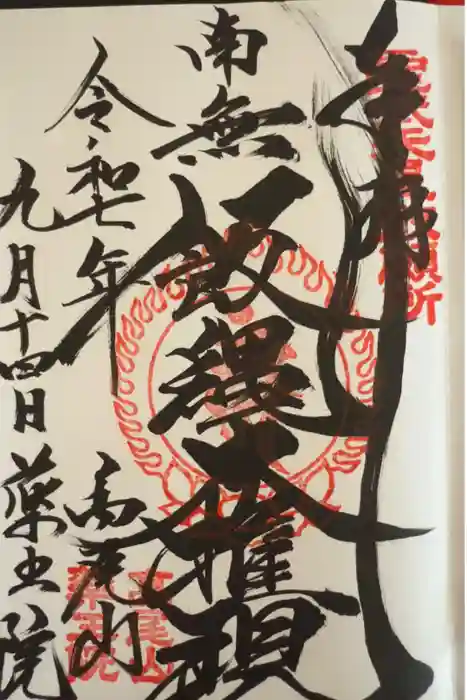 奉拝
南無飯縄大権現
令和七年
九月十四日
高尾山
薬王院
高尾山
薬王院